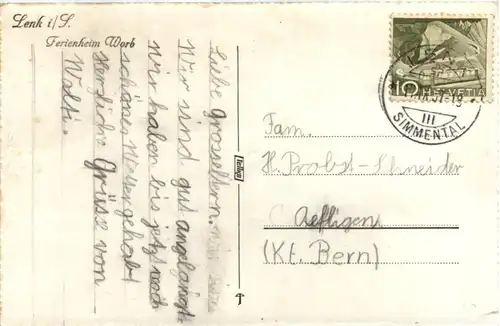 Lenk i/S.
Ferienheim Worb
Liebe Grosseltern.
Wir sind gut angelangt.
Wir haben bis jetzt noch
schönes Wetter gehabt
Herzliche Grüsse von
Walti.
Helios
10 HELVETIA
III
SIMMENTAL
Fam.
H. Probst-Schneider
Aefligen
(Kt. Bern)